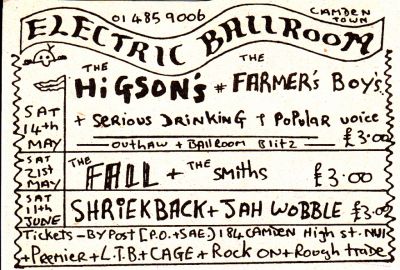 01 485 9006
CAMDEN TOWN
ELECTRIC BALLROOM
THE HiGSON's # THE FARMER's BOY's
SAT 14th MAY
+ SERiOUS DRiNKiNG + POPULAR VOiCE
OUTHAW + BALLROOM BLiTZ £3.00
SAT 21st MAY
THE FALL + THE SMiTHS £3.00
SAT 11th JUNE
SHRiEKBACK + JAH WOBBLE £3.02
Tickets - BY Post [P.O. + SAE.] 184 CAMDEN HigH st. NW1
+ PREMiER + L.T.B + CAGE + ROCK ON + ROugH TRADE